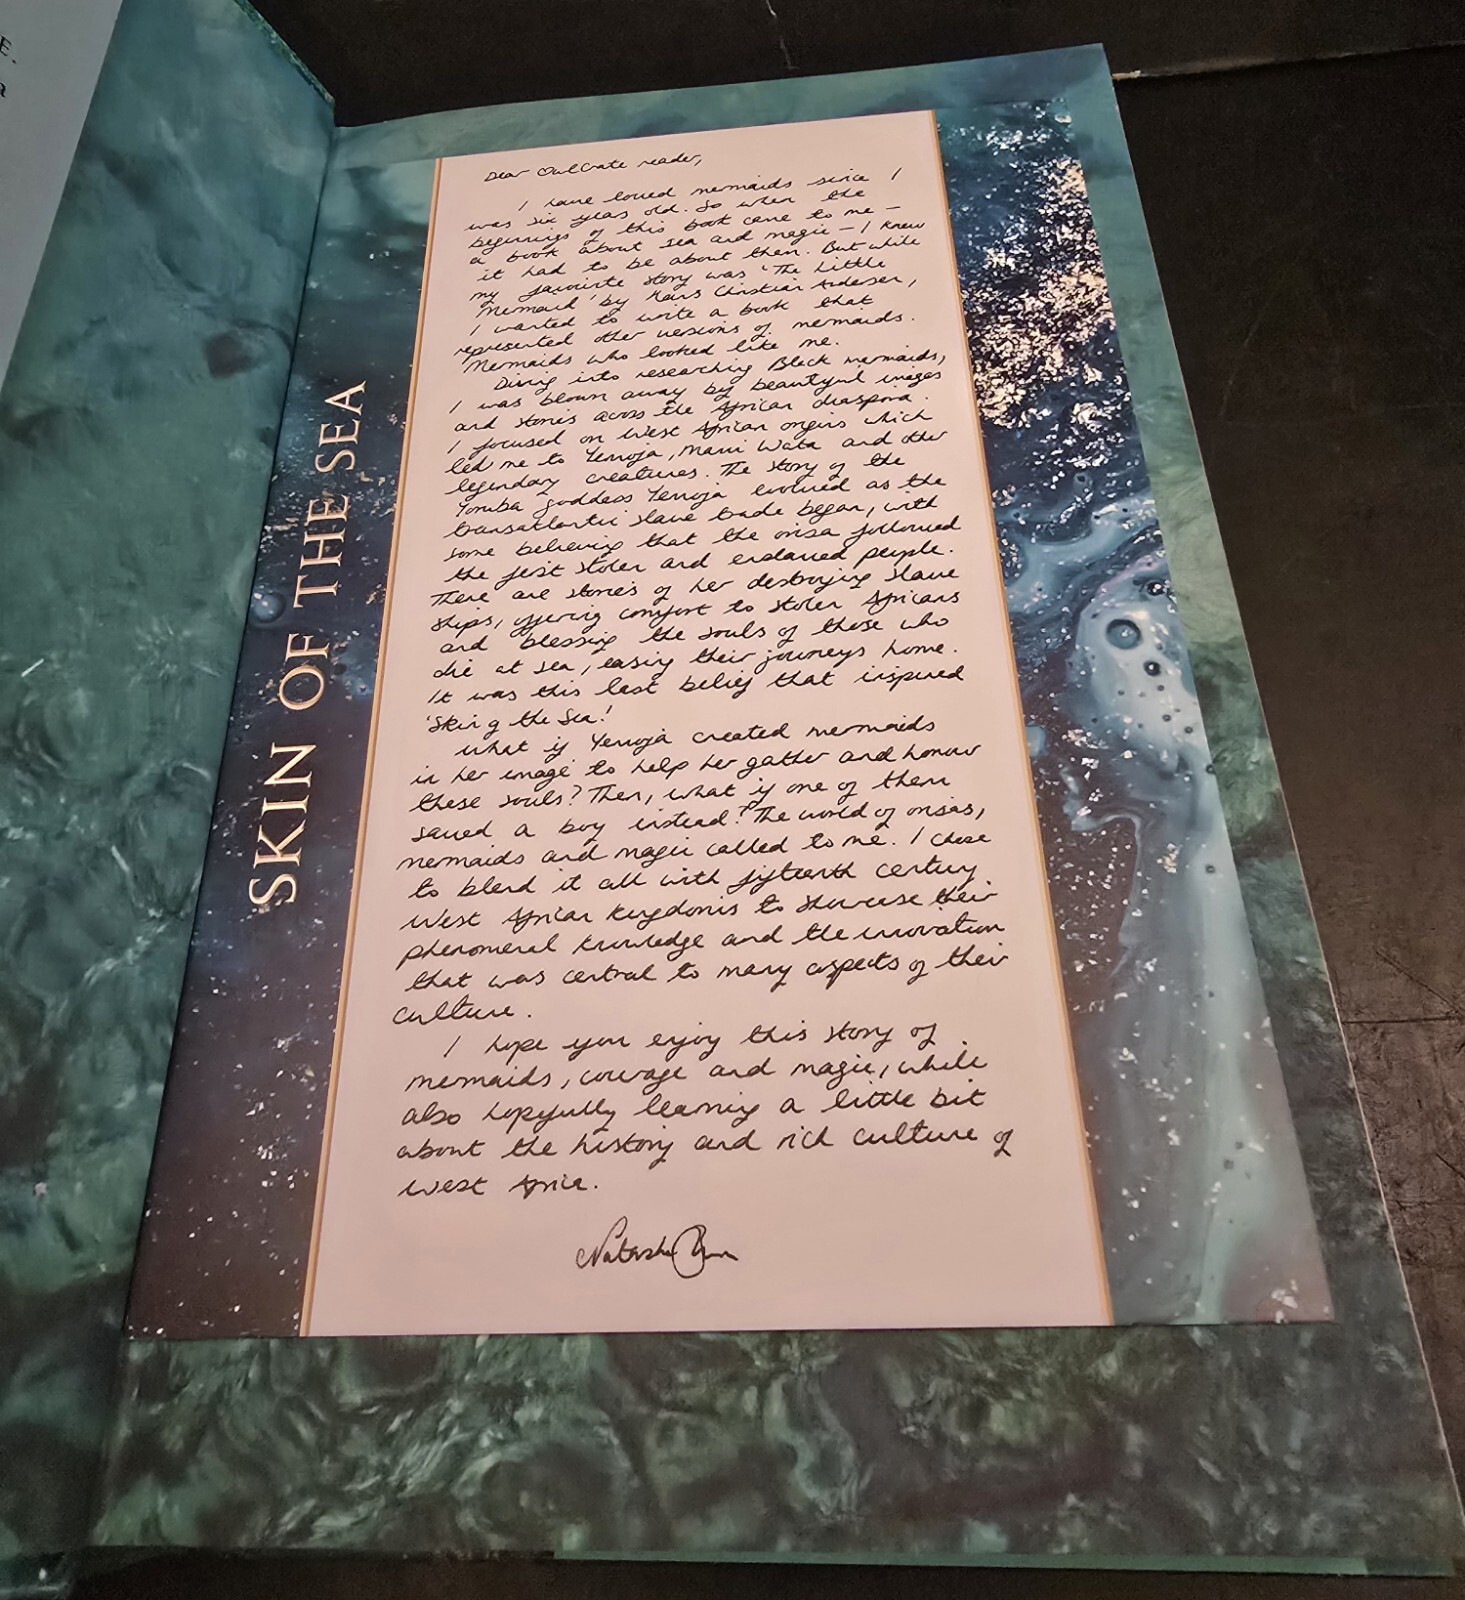 E.
a
SKIN OF THE SEA
Dear OwlCrate reader,
I have loved mermaids since I
was six years old. So when the
beginnings of this book came to me —
a book about sea and magic — I knew
it had to be about them. But while
my favourite story was 'The Little
Mermaid' by Hans Christian Andersen,
I wanted to write a book that
represented other versions of mermaids.
Mermaids who looked like me.
Diving into researching Black mermaids,
I was blown away by beautiful images
and stories across the African diaspora.
I focused on West African origins which
led me to Yemoja, Mami Wata and other
legendary creatures. The story of the
Yoruba goddess Yemoja evolved as the
transatlantic slave trade began, with
some believing that the orisa followed
the first stolen and enslaved people.
There are stories of her destroying slave
ships, offering comfort to stolen Africans
and blessing the souls of those who
die at sea, easing their journeys home.
It was this last belief that inspired
'Skin of the Sea'.
What if Yemoja created mermaids
in her image to help her gather and honour
these souls? Then, what if one of them
saved a boy instead? The world of orisas,
mermaids and magic called to me. I chose
to blend it all with fifteenth century
West African kingdoms to showcase their
phenomenal knowledge and the innovation
that was central to many aspects of their
culture.
I hope you enjoy this story of
mermaids, courage and magic, while
also hopefully learning a little bit
about the history and rich culture of
West Africa.
Natasha Bowen